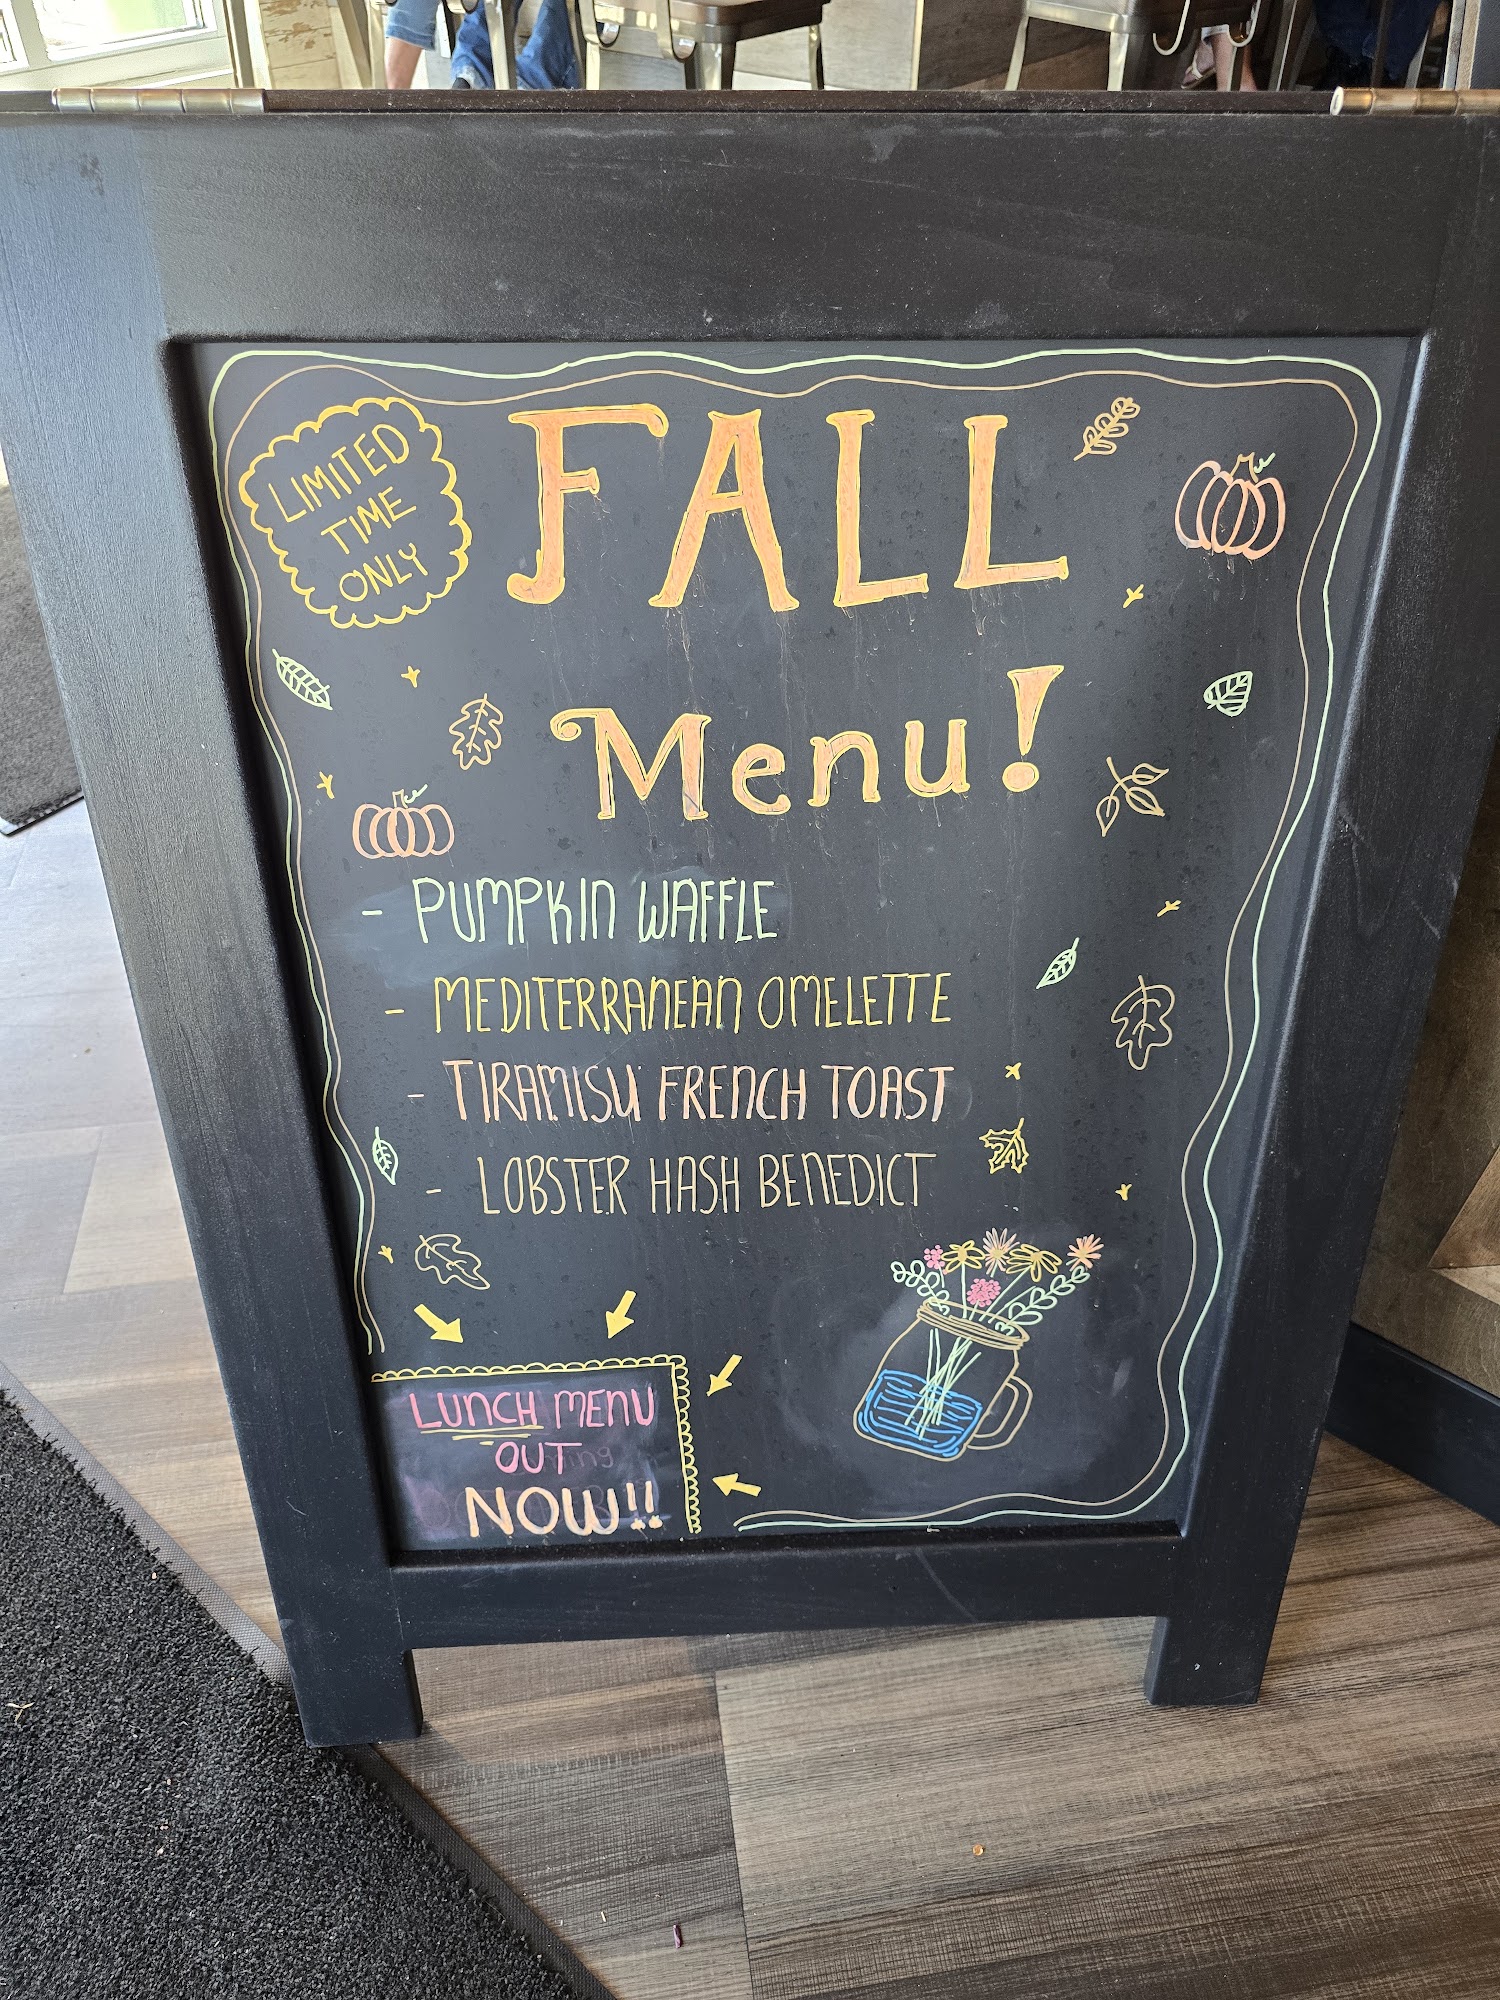 LIMITED
TIME
ONLY
FALL
Menu!
- PUMPKIN WAFFLE
- MEDITERRANEAN OMELETTE
- TIRAMISU FRENCH TOAST
- LOBSTER HASH BENEDICT
LUNCH MENU
OUT
NOW!!